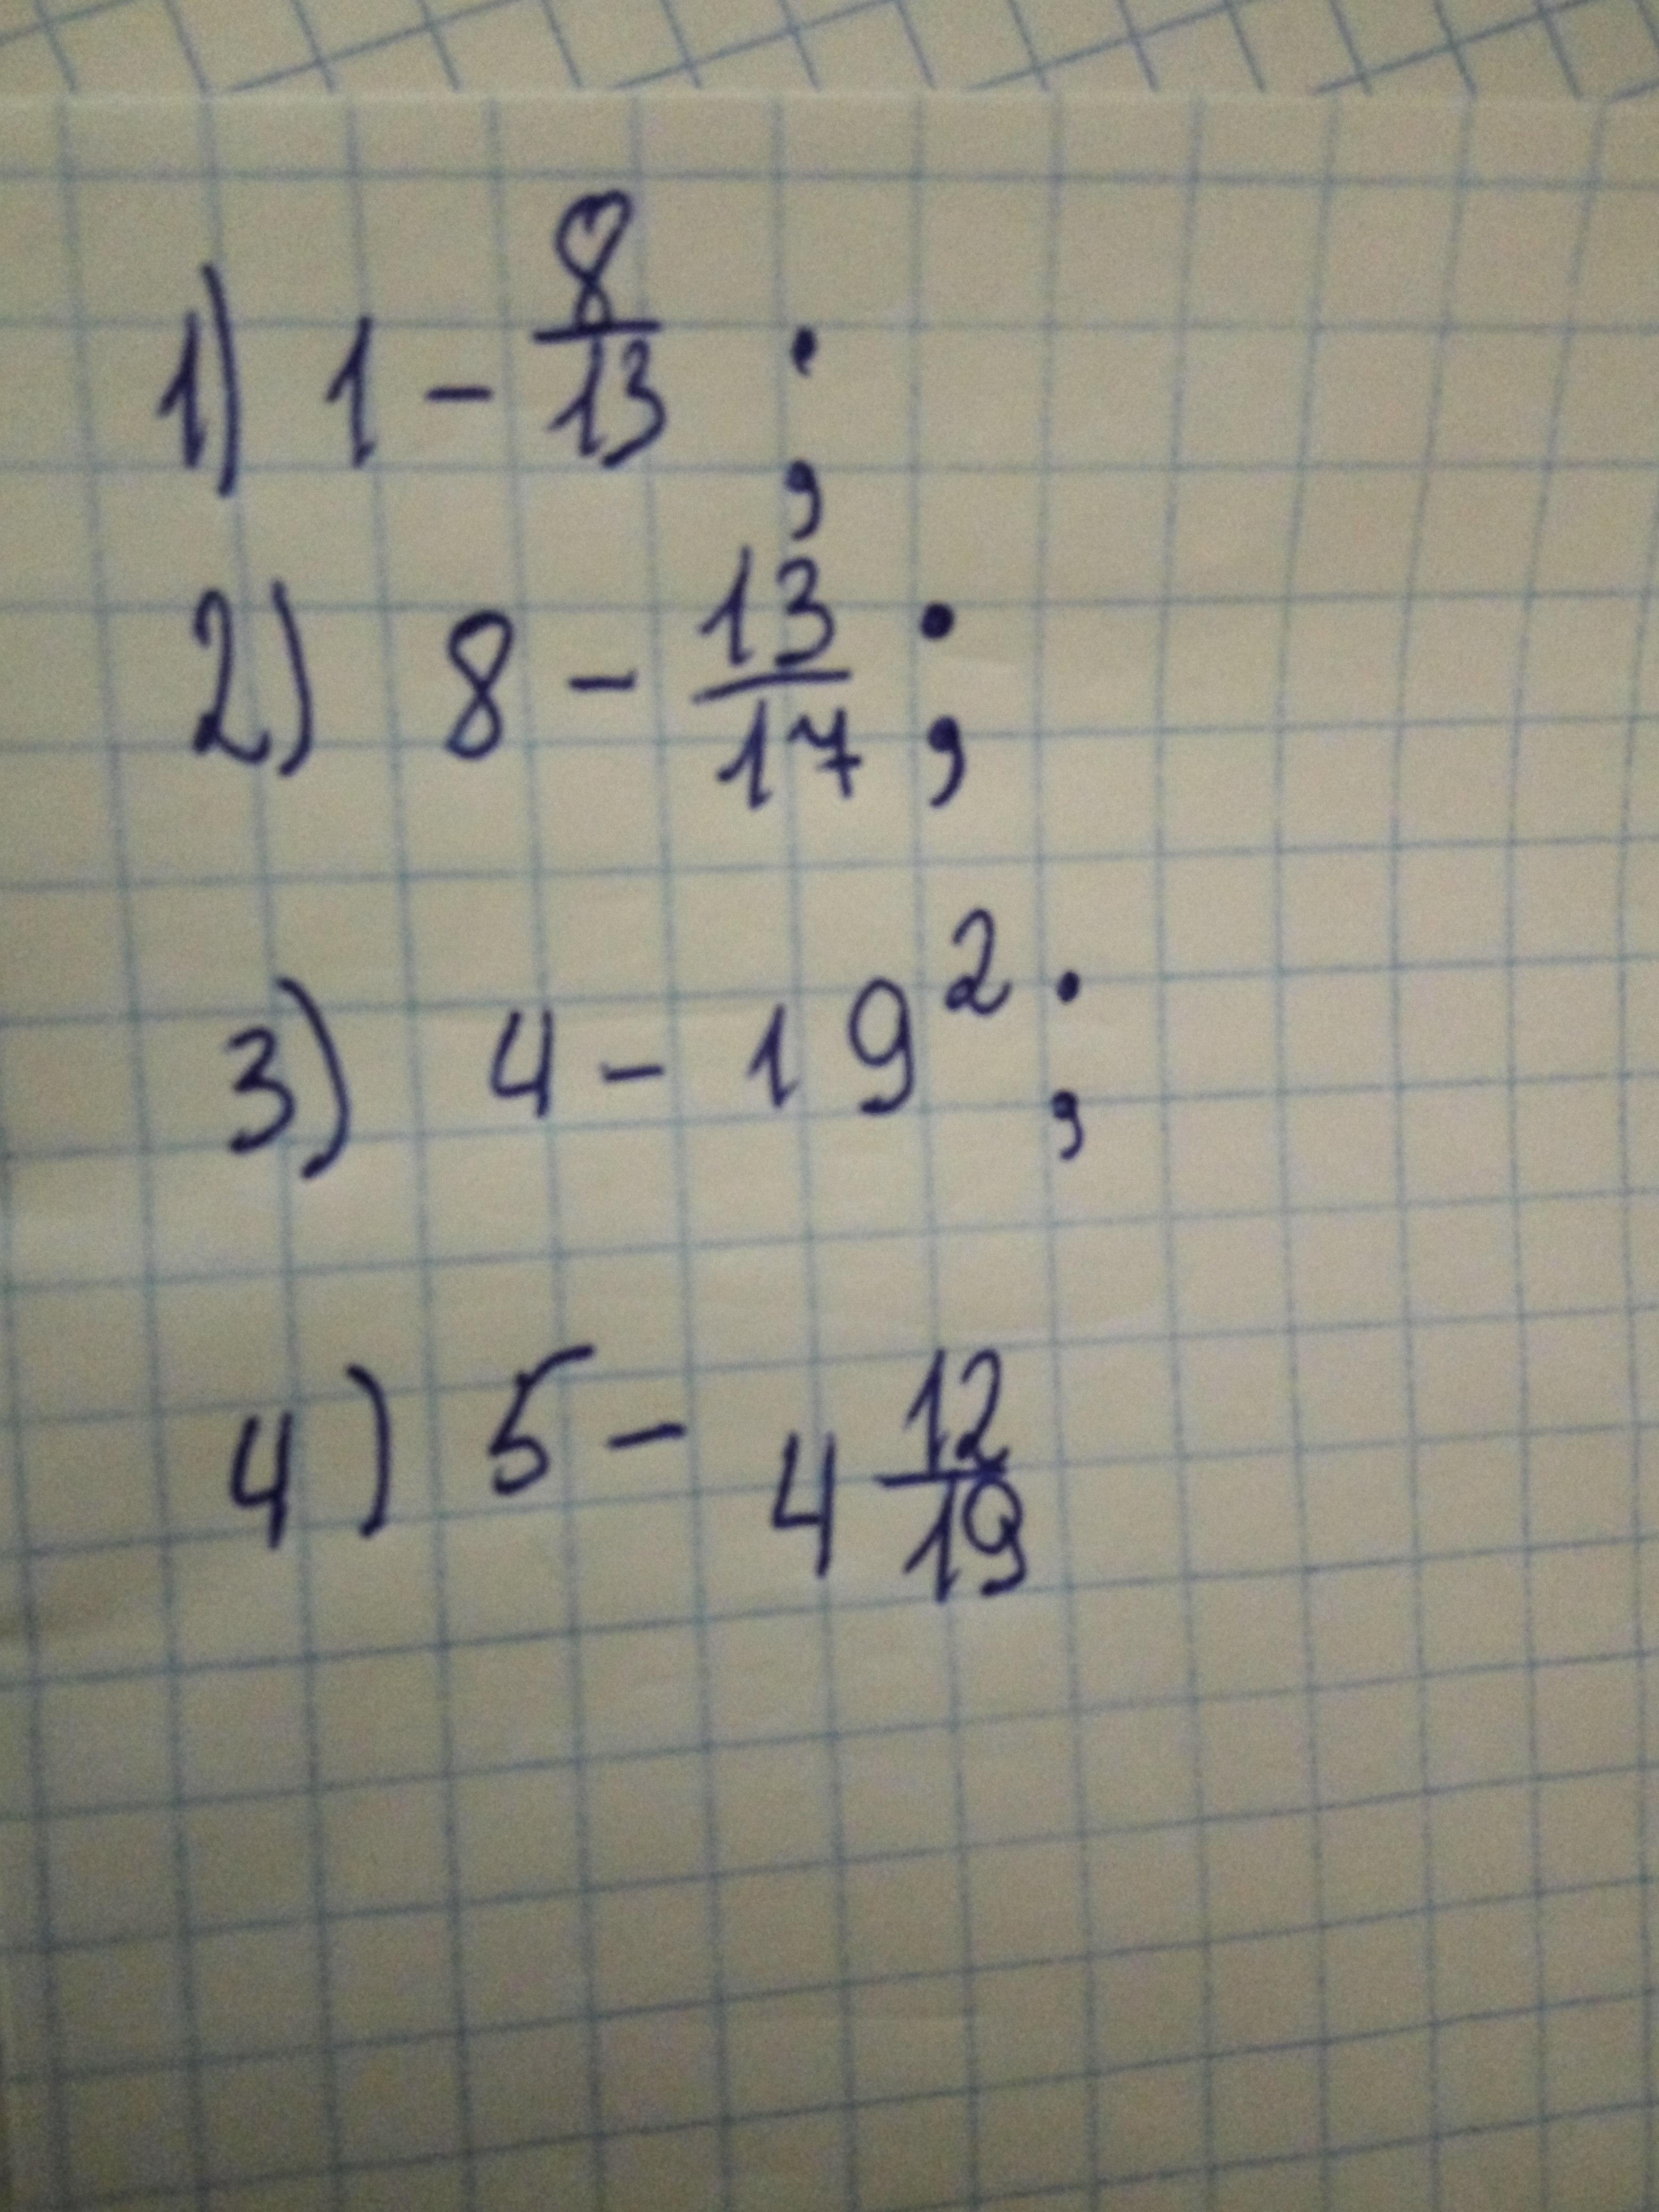 1) 1 - 8/13 ;
2) 8 - 13/17 ;
3) 4 - 19² ;
4) 5 - 4 12/19